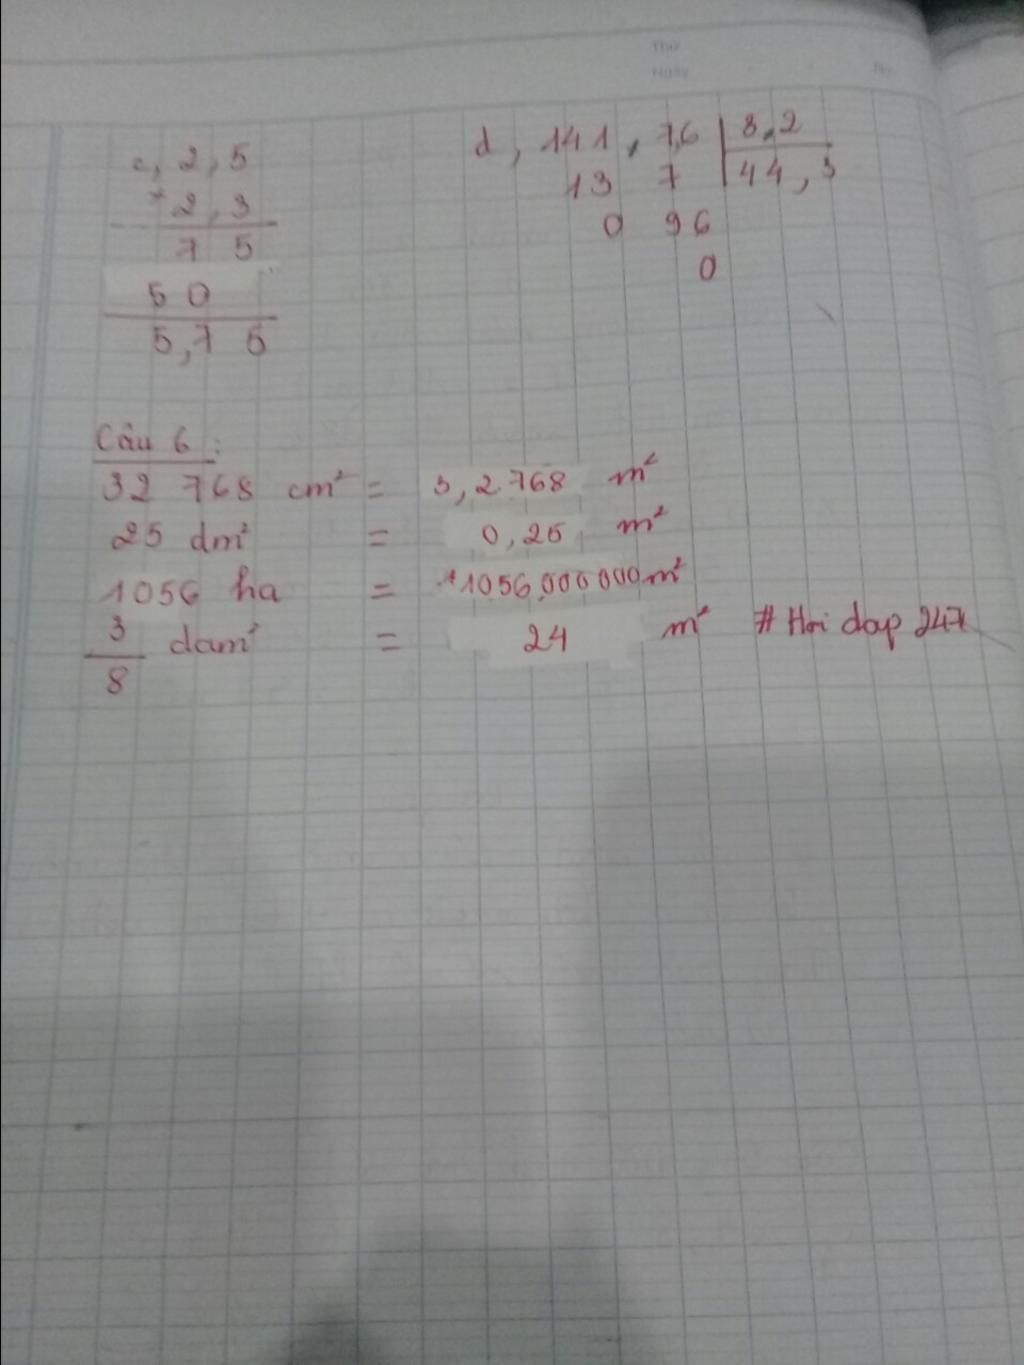 Thứ
Ngày
c, 2,5
× 2,3
7 5
5 0
5,7 5
d, 141,7,6 3,2
13 7 44,3
0 96
0
Câu 6:
32 768 cm² = 3,2768 m²
25 dm² = 0,25 m²
1056 ha = 1056,000000 m²
3/8 dam² = 24 m² # Hoi dap 247